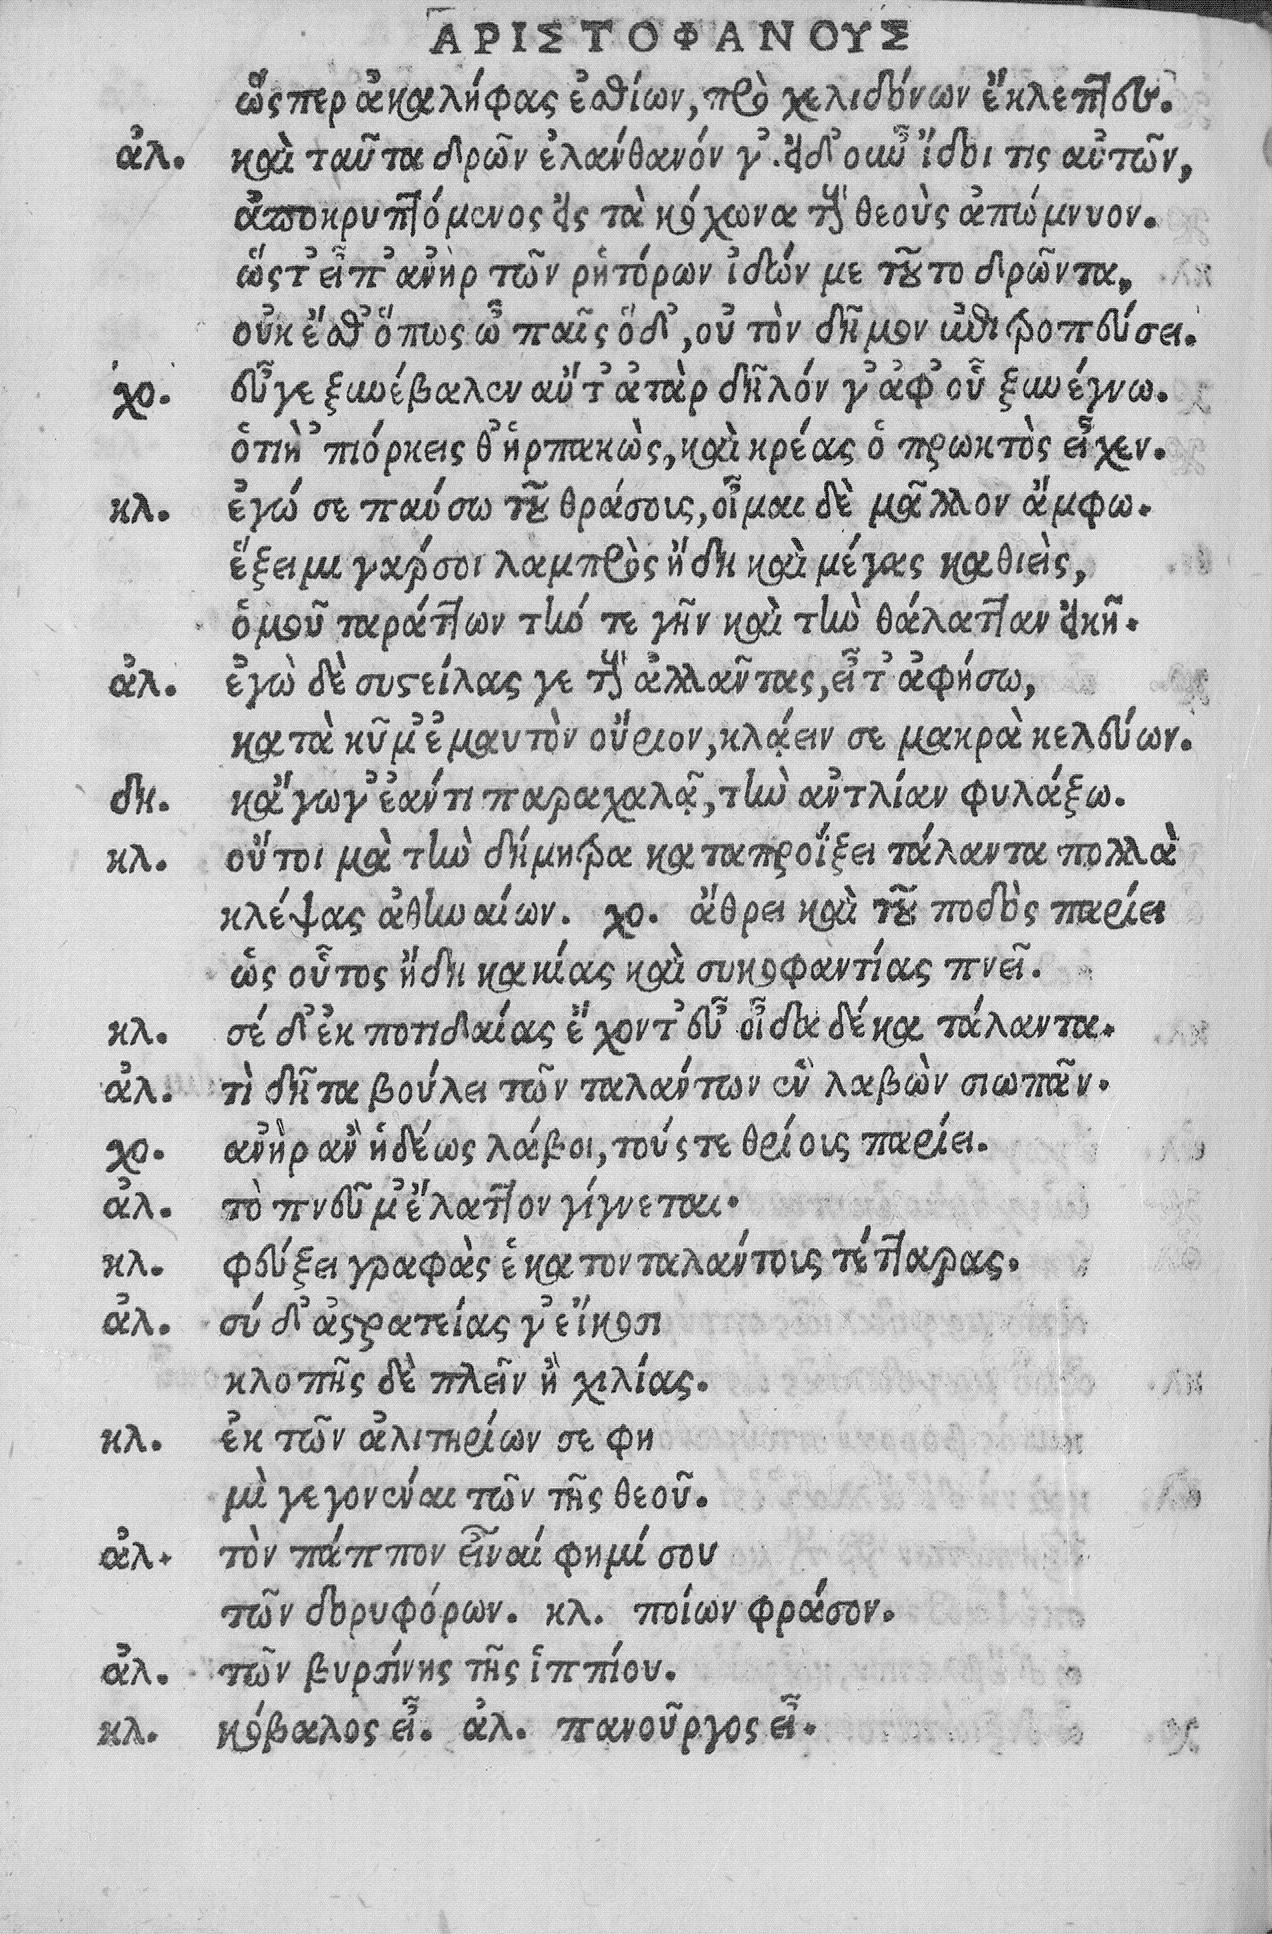 ΑΡΙΣΤΟΦΑΝΟΥΣ
ὥςπερ ἀκαλήφας ἐσθίων, πρὸ χελιδόνων ἔκλεπτευ.
ἀλ. καὶ ταῦτα δρῶν ἐλάνθανόν γ'. εἰ δ' οὖν ἴδοι τις αὐτῶν,
ἀποκρυπτόμενος εἰς τὰ κόχωνα τοὺς θεοὺς ἀπώμνυον.
ὥςτ' εἶπ' ἀνὴρ τῶν ῥητόρων ἰδών με τοῦτο δρῶντα,
οὐκ ἔσθ' ὅπως ὦ παῖς ὅδ', οὐ τὸν δῆμον ἐπιτροπεύσει.
χο. εὖγε ξυνέβαλεν αὔτ' ἀτὰρ δῆλόν γ' ἀφ' οὗ ξυνέγνω.
ὁτιὴ 'πιόρκεις θ' ἡρπακὼς, καὶ κρέας ὁ πρωκτὸς εἶχεν.
κλ. ἐγώ σε παύσω τοῦ θράσοις, οἶμαι δὲ μᾶλλον ἄμφω.
ἔξειμι γαρσοι λαμπρὸς ἤδη καὶ μέγας καθιεὶς,
ὁμοῦ ταράττων τήν τε γῆν καὶ τὴν θάλατταν εἰκῆ.
ἀλ. ἐγὼ δὲ συστείλας γε τοὺς ἀλλᾶντας, εἶτ' ἀφήσω,
κατὰ κῦμ' ἐμαυτὸν οὔριον, κλάειν σε μακρὰ κελεύων.
δη. κἄγωγ' ἐάν τι παραχαλᾷ, τὴν ἀντλίαν φυλάξω.
κλ. οὔτοι μὰ τὴν δήμητρα καταπροίξει τάλαντα πολλὰ
κλέψας ἀθηναίων. χο. ἄθρει καὶ τοῦ ποδὸς παρίει
ὡς οὗτος ἤδη κακίας καὶ συκοφαντίας πνεῖ.
κλ. σέ δ' ἐκ ποτιδαίας ἔχοντ' εὖ οἶδα δέκα τάλαντα.
ἀλ. τὶ δῆτα βούλει τῶν ταλάντων ἓν λαβὼν σιωπᾶν.
χο. ἀνὴρ ἂν ἡδέως λάβοι, τούς τε θρίοις παρίει.
ἀλ. τὸ πνεῦμ' ἔλαττον γίγνεται.
κλ. φεύξει γραφὰς ἑκατονταλάντοις τέτταρας.
ἀλ. σύ δ' ἀστρατείας γ' εἴκοσι
κλοπῆς δὲ πλεῖν ἢ χιλίας.
κλ. ἐκ τῶν ἀλιτηρίων σε φη
μὶ γεγονέναι τῶν τῆς θεοῦ.
ἀλ. τὸν πάππον εἶναί φημί σου
τῶν δορυφόρων. κλ. ποίων φράσον.
ἀλ. τῶν βυρσίνης τῆς ἱππίου.
κλ. κόβαλος εἶ. ἀλ. πανοῦργος εἶ.